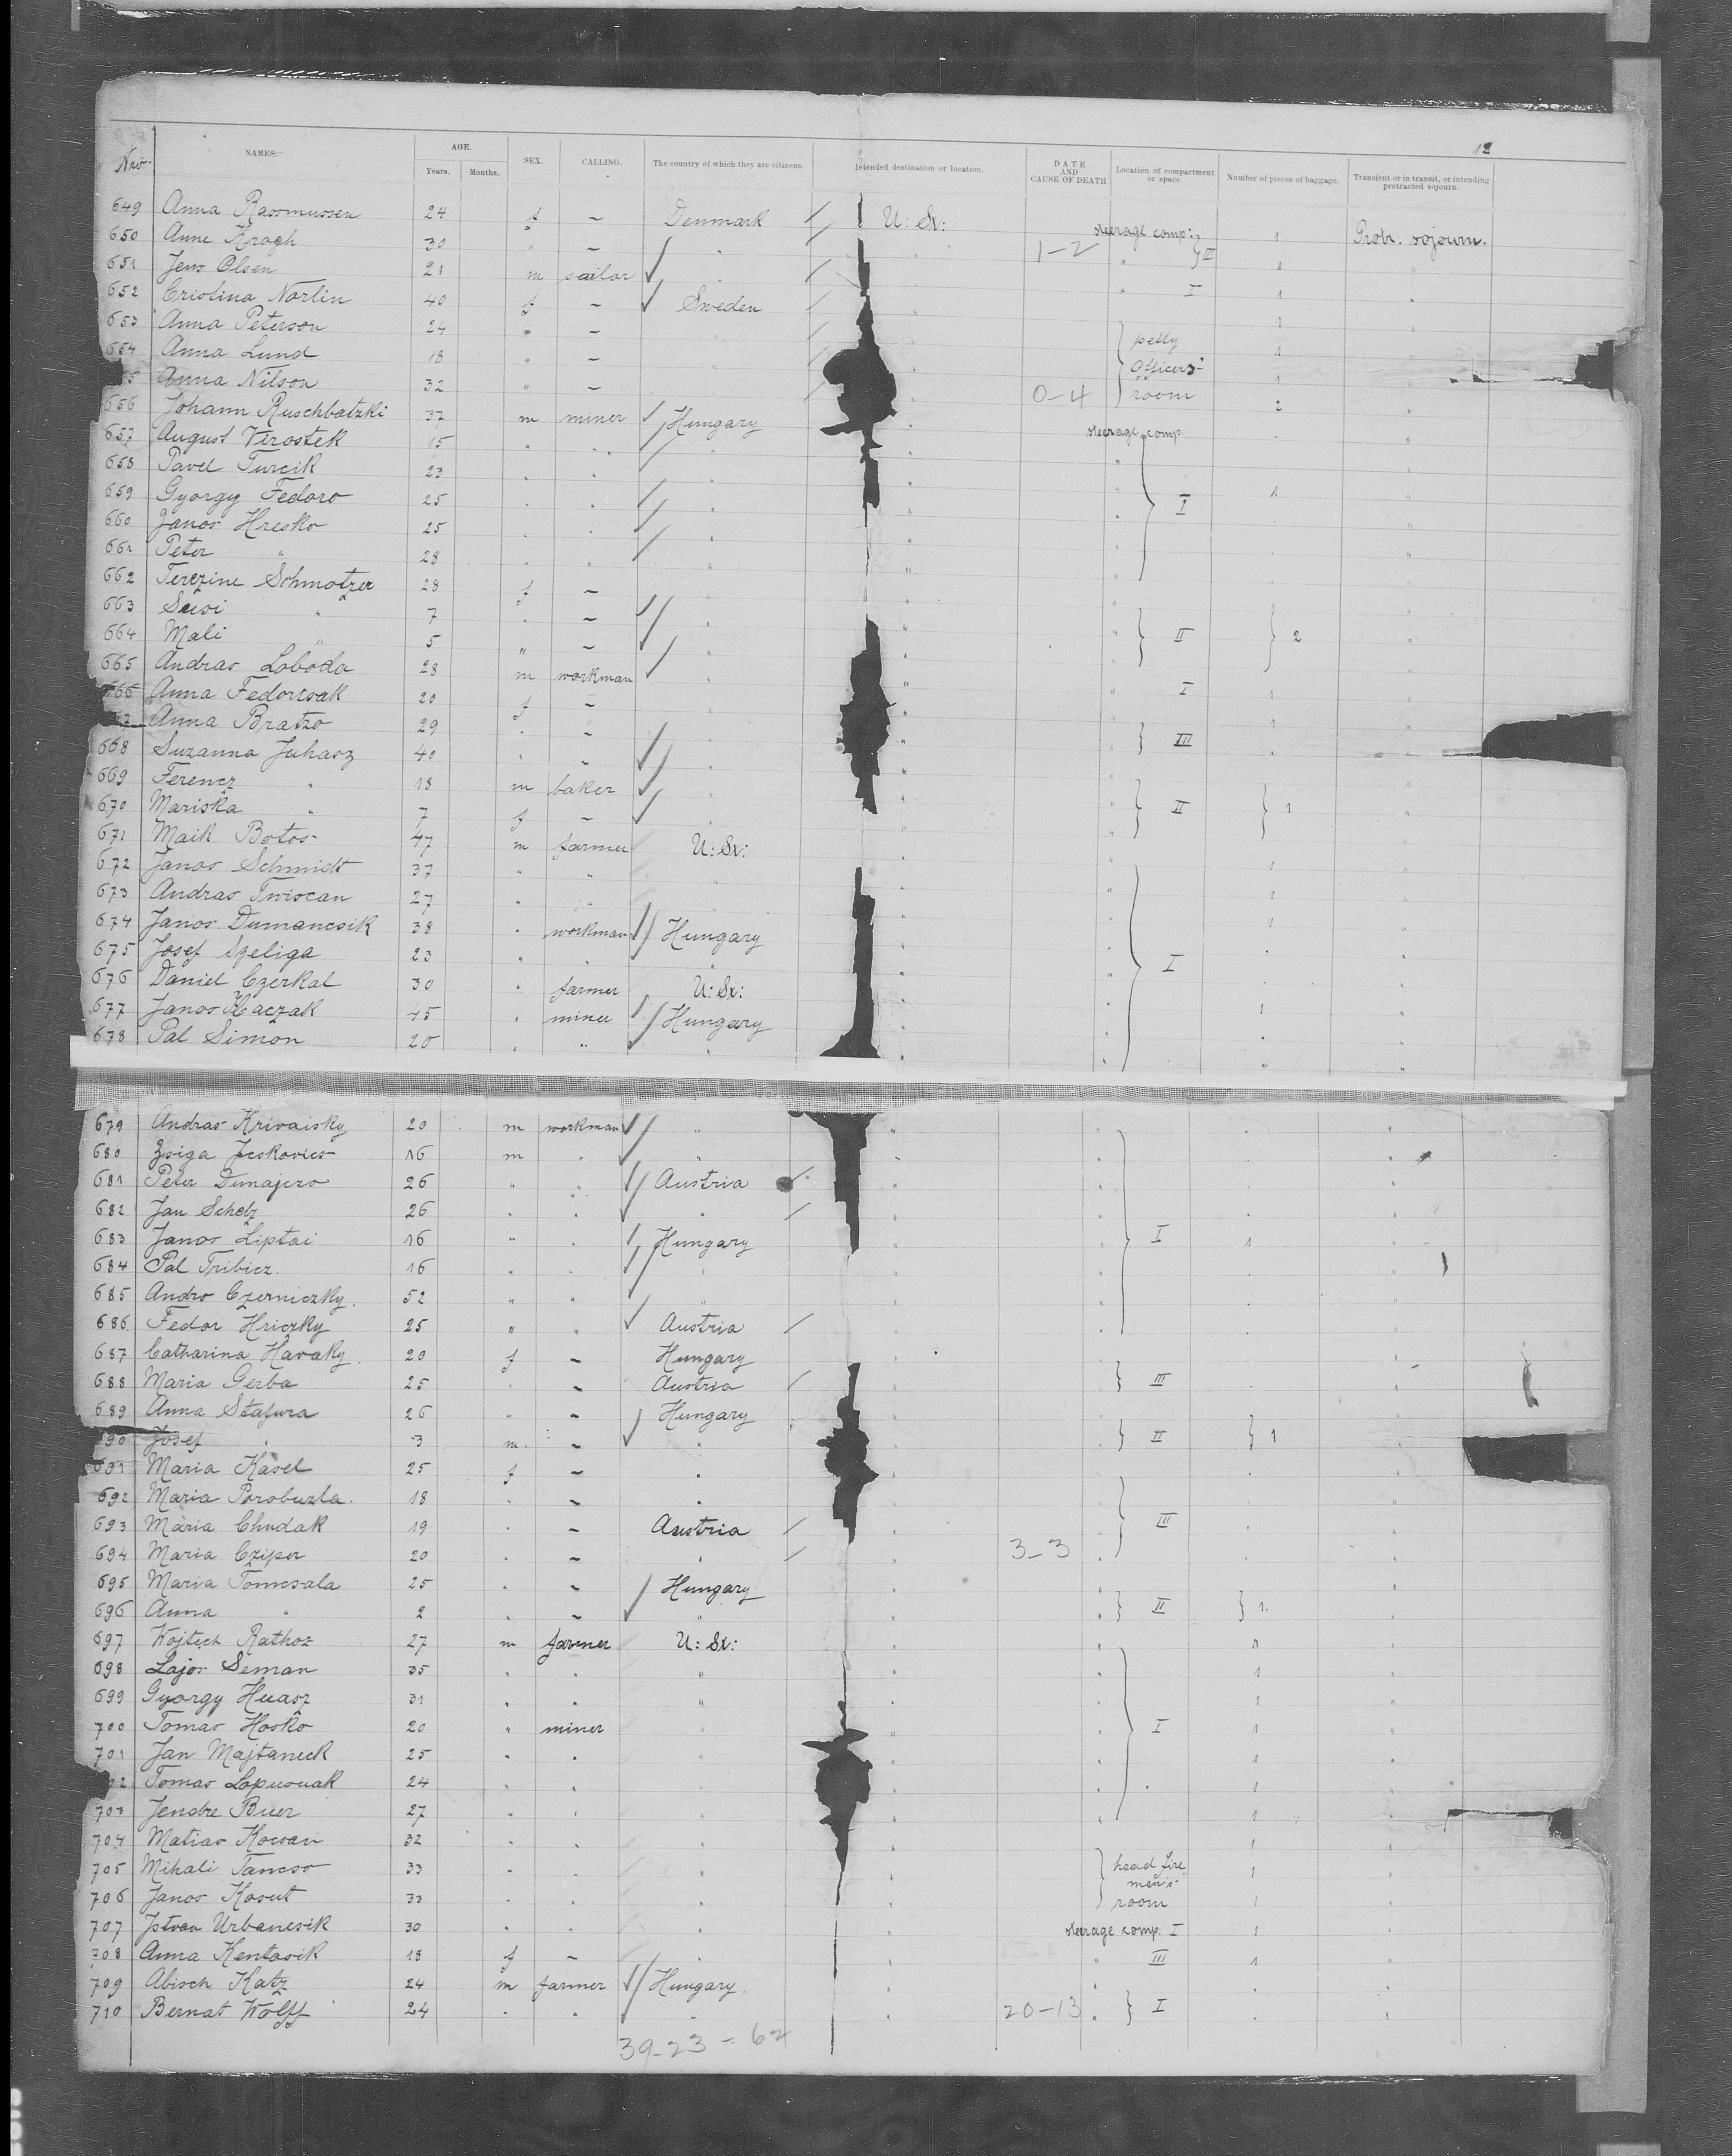 12
Nro. NAMES. AGE. Years. Months. SEX. CALLING. The country of which they are citizens. Intended destination or location. DATE AND CAUSE OF DEATH Location of compartment or space. Number of pieces of baggage. Transient or in transit, or intending protracted sojourn.
649 Anna Rasmussen 24 f – Denmark U: St: steerage comp: 1 Protr. sojourn.
650 Anne Krogh 30 " – " 1-2 " } II 1 "
651 Jens Olsen 21 m sailor " " I 1 "
652 Cristina Norlin 40 f – Sweden 1
653 Anna Peterson 24 " – " petty 1 "
654 Anna Lund 18 " – " Officers' 1 "
Anna Nilson 32 " – " 0-4 room 2 "
656 Johann Ruschbatzki 37 m miner Hungary " steerage comp. "
657 August Virostek 15 " " " " "
658 Pavel Turcik 23 " " " " "
659 Gyorgy Fedoro 25 " " " " I 1 "
660 Janos Hresko 25 " " " " "
661 Peter " 28 " " " " "
662 Terezine Schmotzer 28 f – " " "
663 Susi " 7 " – " " } II } 2 "
664 Mali " 5 " – " " "
665 Andras Loboda 28 m workman " " " I 1 "
666 Anna Fedorcsak 20 f – " " 1 "
Anna Bratzo 29 " – " " } III "
668 Suzanna Juhasz 40 " – " " "
669 Ferencz " 18 m baker " " } II } 1 "
670 Mariska " 7 f – " " "
671 Maik Botos 47 m farmer U: St: " 1 "
672 Janos Schmidt 37 " " " " 1 "
673 Andras Twiscan 27 " " " " 1 "
674 Janos Dumancsik 38 " workman Hungary " "
675 Josef Szeliga 23 " " " " I "
676 Daniel Czerkal 30 " farmer U: St: " 1 "
677 Janos Kaczak 45 " miner Hungary " "
678 Pal Simon 20 " " " " "
679 Andras Krivaisky 20 m workman " " "
680 Zsiga Jeskovics 16 m " " " "
681 Peter Dunajero 26 " " Austria " "
682 Jan Schelz 26 " " " " "
683 Janos Liptai 16 " " Hungary " I 1 "
684 Pal Tribicz. 16 " " " " "
685 Andro Czerniczky. 52 " " " " "
686 Fedor Hriczky 25 " " Austria " "
687 Catharina Havaky. 20 f – Hungary " "
688 Maria Gerba 25 " – Austria " } III "
689 Anna Stafura 26 " – Hungary " "
690 Josef " 3 m. – " " } II } 1 "
691 Maria Kasel 25 f – " "
692 Maria Porobuzla. 18 " – " "
693 Maria Chudak 19 " – Austria " III "
694 Maria Cziper 20 " – " 3-3 "
695 Maria Tomcsala 25 " – Hungary " "
696 Anna " 2 " – " " } II } 1. "
697 Wojtech Rathoz 27 m farmer U: St: " 1 "
698 Lajos Seman 35 " " " " 1 "
699 Gyorgy Huasz 31 " " " " 1 "
700 Tomas Hosko 20 " miner " " I 1 "
701 Jan Majtaneck 25 " " " " 1 "
Tomas Lopusuak 24 " " " " 1 "
703 Jendre Buer 27 " " " " 1 "
704 Matias Kocsan 32 " " " " 1 "
705 Mihali Tancso 33 " " " " head fire 1 "
men's
706 Janos Kosut 33 " " " " room 1 "
707 Istvan Urbancsik 30 " " " " steerage comp: I 1 "
708 Anna Kentosik 18 f – " " " III 1 "
709 Abisch Katz 24 m farmer Hungary. " " "
710 Bernat Wolff 24 " " " " 20-13 " } I "
39-23 - 62